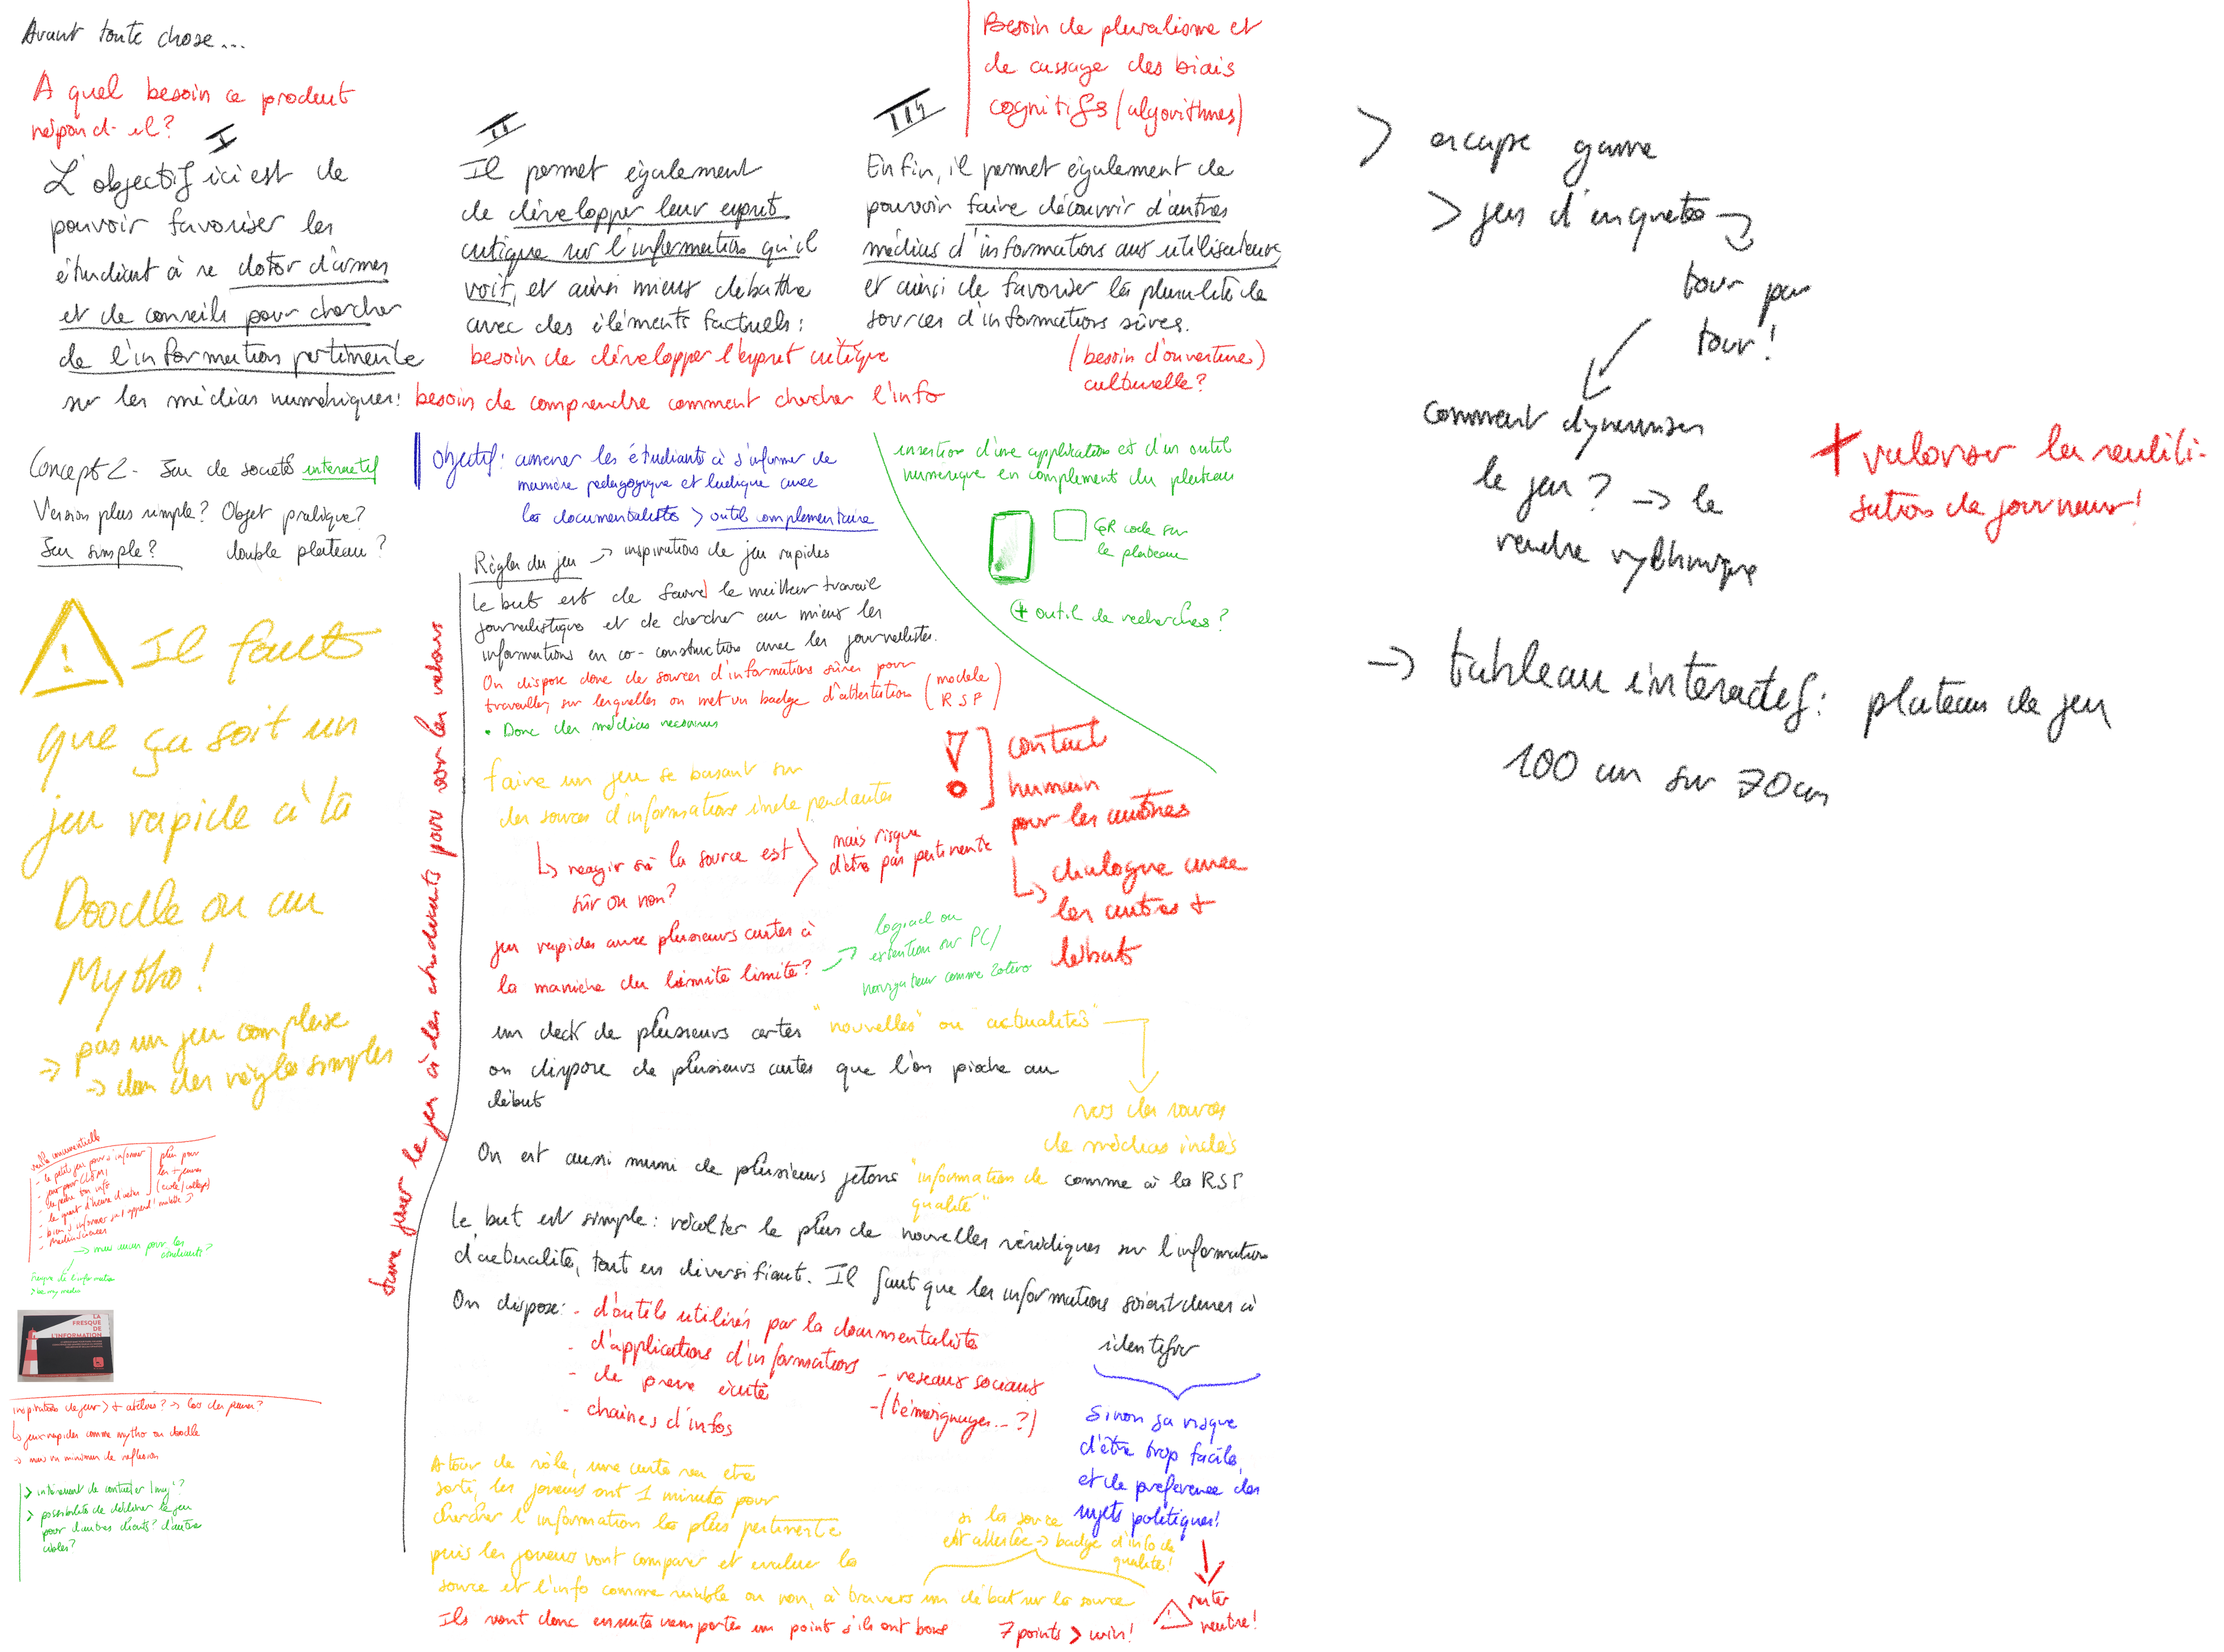 Avant toute chose...
A quel besoin ce produit
répond-il?
I
L'objectif ici est de
pouvoir favoriser les
étudiant à se doter d'armes
et de conseils pour chercher
de l'information pertinente
sur les médias numériques:
besoin de comprendre comment chercher l'info
II
Il permet également
de développer leur esprit
critique sur l'information qu'il
voit, et ainsi mieux debattre
avec des éléments factuels:
besoin de développer l'esprit critique
III
Besoin de pluralisme et
de cassage des biais
cognitifs (algorithmes)
Enfin, il permet également de
pouvoir faire découvrir d'autres
médias d'informations aux utilisateurs,
et ainsi de favoriser la pluralité de
sources d'informations sûres.
(besoin d'ouverture)
culturelle?
Concept 2 - Jeu de société interactif
Version plus simple? Objet pratique?
Jeu simple? double plateau?
Il faut
que ça soit un
jeu rapide à la
Doodle ou au
Mytho!
→ pas un jeu complexe
→ dans des règles simples
veille concurrentielle
- le petit jeu pour s'informer
- le quart d'heure d'actu
plus pour
les + jeunes
(école/collège)
→ mais aucun pour les
étudiants?
Fresque de l'information
LA
FRESQUE
DE
L'INFORMATION
inspirations de jeux > + ateliers?
↳ jeux rapides comme mytho ou doodle
→ mais un minimum de réflexion
> intéressant de contacter
> possibilité de décliner le jeu
pour d'autres clients? d'autre
cibles?
faire jouer le jeu à des étudiants pour voir les retours
Objectif: amener les étudiants à s'informer de
manière pédagogique et ludique avec
les documentalistes > outil complémentaire
Règles du jeu → inspirations de jeu rapides
Le but est de faire le meilleur travail
journalistique et de chercher au mieux les
informations en co-construction avec les journalistes.
On dispose donc de sources d'informations sûres pour
travailler, sur lesquelles on met un badge d'attestation (modèle
RSF)
• Donc des médias reconnus
faire un jeu se basant sur
des sources d'informations indépendantes
↳ réagir si la source est
sûr ou non?
mais risque
d'être pas pertinente
jeu rapides avec plusieurs cartes à
la manière du limite limite?
→ logiciel ou
extention sur PC/
navigateur comme Zotero
insertion d'une application et d'un outil
numérique en complément du plateau
QR code sur
le plateau
+ outil de recherches?
! ] contact
humain
pour les autres
↳ dialogue avec
les autres +
débats
un deck de plusieurs cartes "nouvelles" ou "actualités"
on dispose de plusieurs cartes que l'on pioche au
début
vers des sources
de médias indés
On est aussi muni de plusieurs jetons "information de comme à la RSF
qualité"
Le but est simple: récolter le plus de nouvelles véridiques sur l'information
d'actualité, tout en diversifiant. Il faut que les informations soient dures à
identifier
On dispose: - d'outils utilisés par la documentaliste
- d'applications d'informations
- de presse écrite
- chaînes d'infos
- reseaux sociaux
- (témoignages...?)
Sinon ça risque
d'être trop facile,
et de préférence des
sujets politiques!
→ rester
neutre!
A tour de rôle, une carte va etre
sorti, les joueurs ont 1 minute pour
chercher l'information la plus pertinente
puis les joueurs vont comparer et evaluer la
source et l'info comme viable ou non, à travers un débat sur la source
si la source
est attestée → badge d'info de
qualité!
Ils vont donc ensuite remporter un point s'ils ont bons
7 points > win!
> escape game
> jeu d'enquêtes →
tour par
tour!
comment dynamiser
le jeu? → le
rendre rythmique
+ valoriser la reutili-
sation de journaux!
→ tableau interactif: plateau de jeu
100 cm sur 70 cm